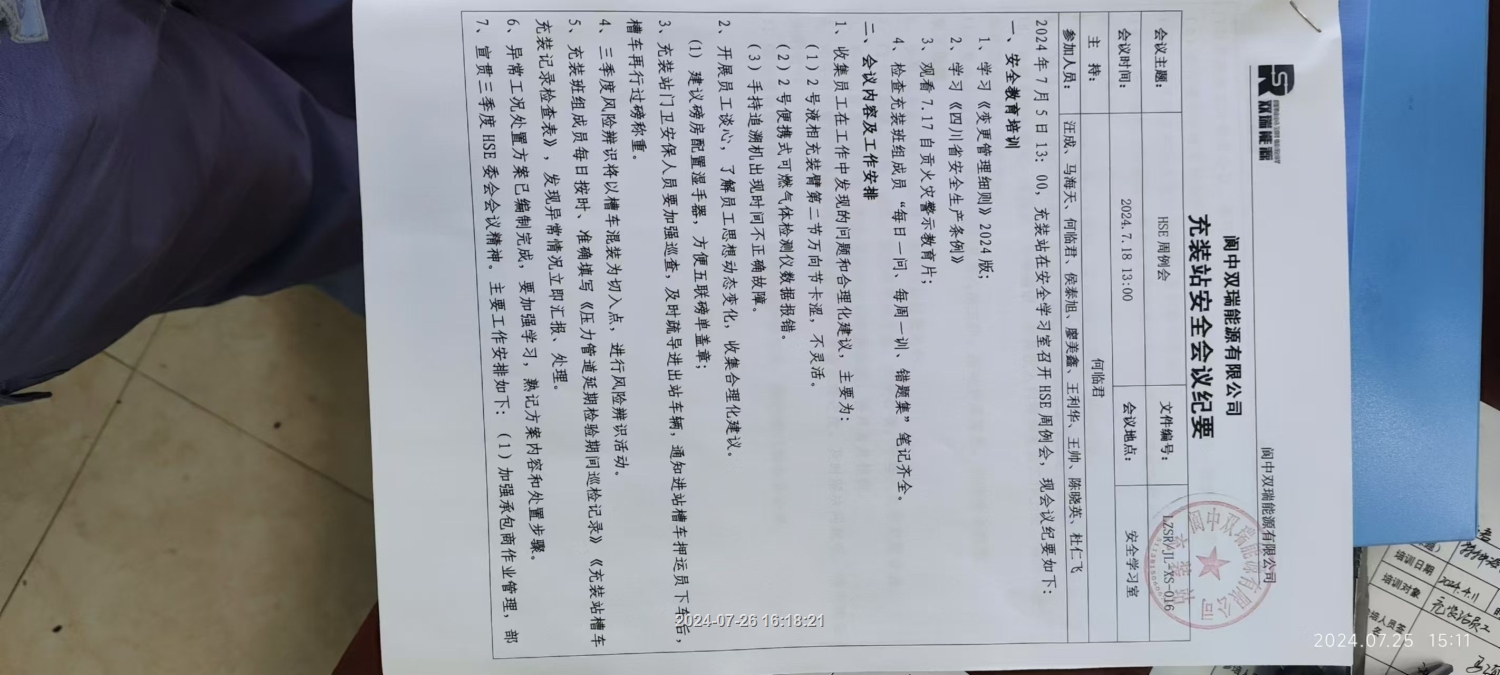 双瑞能源
阆中双瑞能源有限公司
阆中双瑞能源有限公司
充装站安全会议纪要
会议主题： HSE 周例会 文件编号： LZSR/JL-XS-016
会议时间： 2024.7.18 13:00 会议地点： 安全学习室
主 持： 何临君
参加人员： 汪成、马海天、何临君、侯泰旭、廖美鑫、王利华、王帅、陈晓英、杜仁飞
2024 年 7 月 5 日 13：00，充装站在安全学习室召开 HSE 周例会，现会议纪要如下：
一、安全教育培训
1、学习《变更管理细则》2024 版；
2、学习《四川省安全生产条例》
3、观看 7.17 自贡火灾警示教育片；
4、检查充装班组成员“每日一问、每周一训、错题集”笔记齐全。
二、会议内容及工作安排
1、收集员工在工作中发现的问题和合理化建议，主要为：
（1）2 号液相充装臂第二节万向节卡涩，不灵活。
（2）2 号便携式可燃气体检测仪数据报错。
（3）手持追溯机出现时间不正确故障。
2、开展员工谈心，了解员工思想动态变化，收集合理化建议。
（1）建议磅房配置湿手器，方便五联磅单盖章；
3、充装站门卫安保人员要加强巡查，及时疏导进出站车辆，通知进站槽车押运员下车后，
槽车再行过磅称重。
4、三季度风险辨识将以槽车混装为切入点，进行风险辨识活动。
5、充装班组成员每日按时、准确填写《压力管道延期检验期间巡检记录》《充装站槽车
充装记录检查表》，发现异常情况立即汇报、处理。
6、异常工况处置方案已编制完成，要加强学习，熟记方案内容和处置步骤。
7、宣贯三季度 HSE 委会会议精神。主要工作安排如下：（1）加强承包商作业管理，部
阆中双瑞能源有限公司
充装站
培训日期 2024.4.11
培训对象
2024-07-26 16:18:21
2024.07.25 15:11